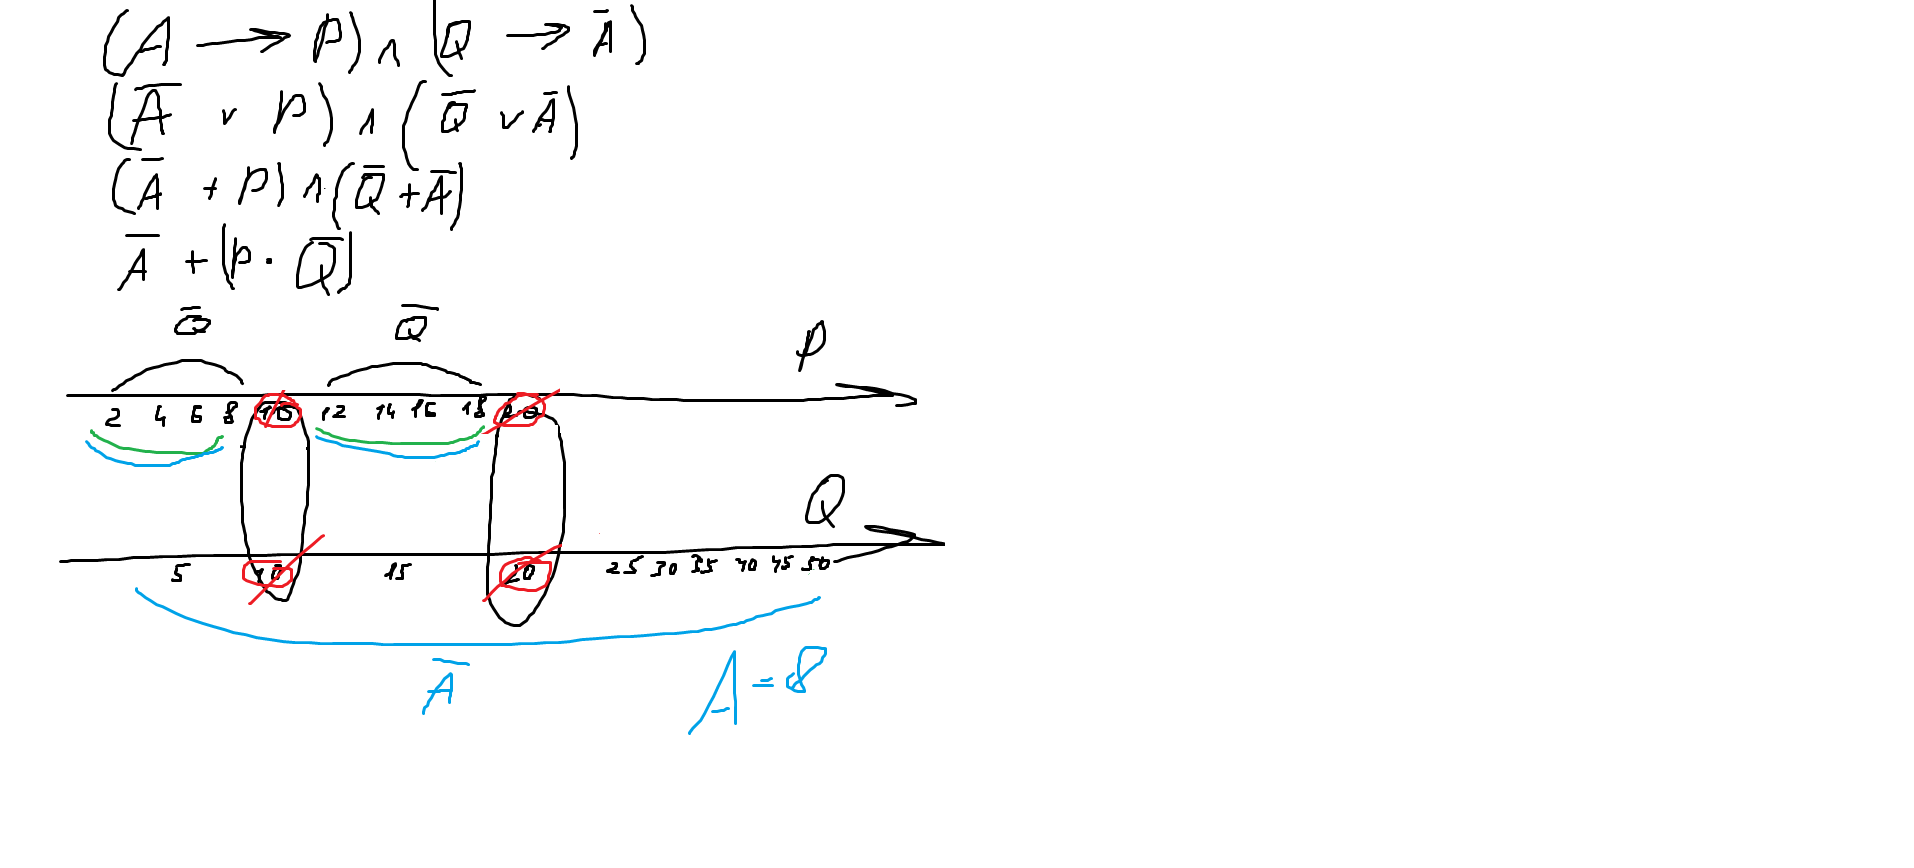 (A → P) ∧ (Q → Ā)
(Ā ∨ P) ∧ (Q̄ ∨ Ā)
(Ā + P) ∧ (Q̄ + Ā)
Ā + (P · Q̄)
Q̄ Q̄
P
2 4 6 8 10 12 14 16 18 20
Q
5 10 15 20 25 30 35 40 45 50
Ā
A = 8